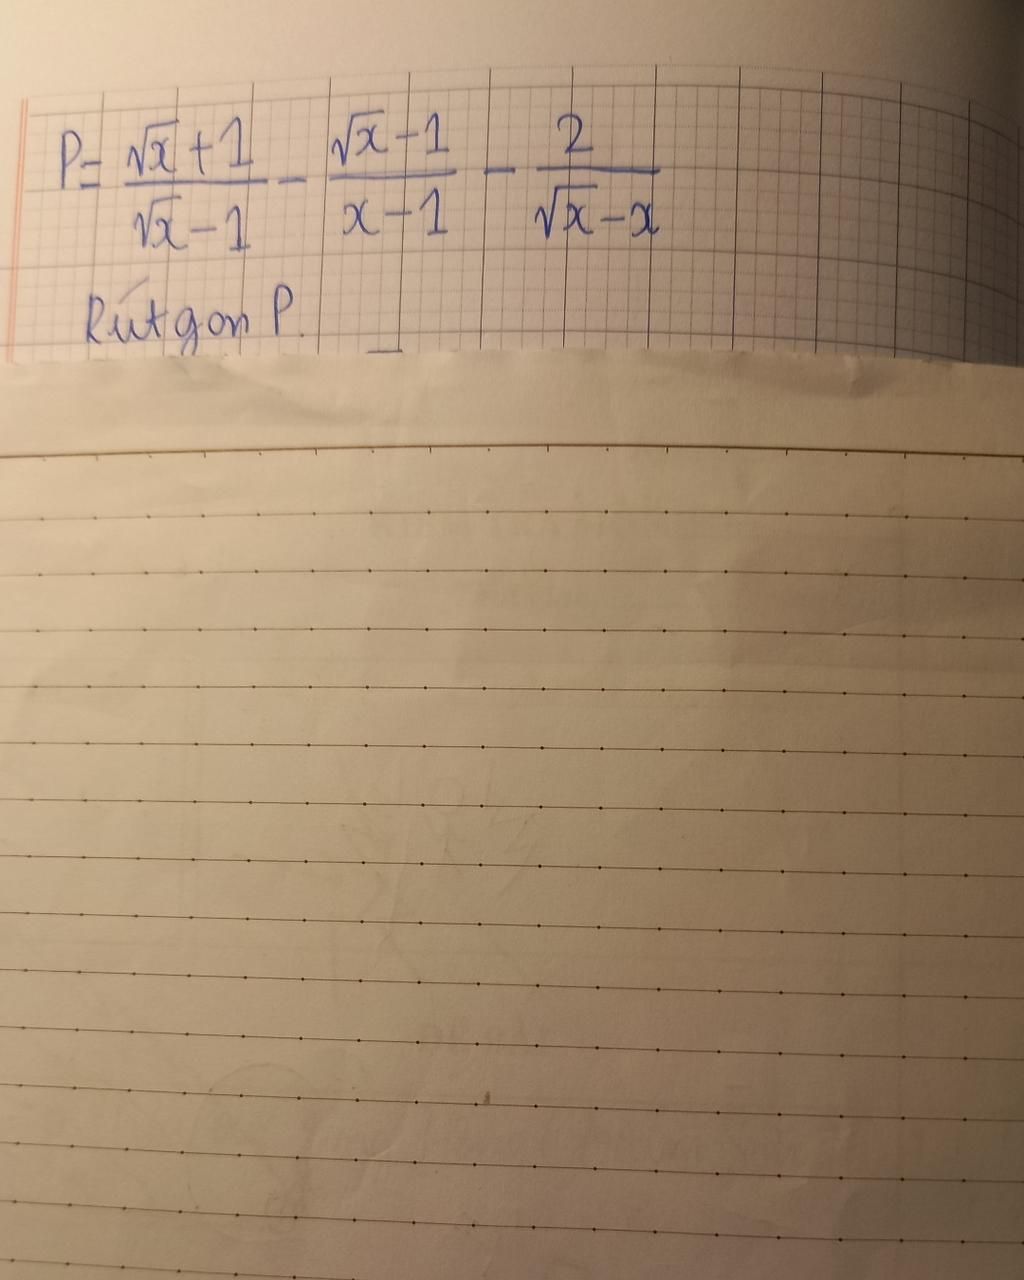 P = \frac{\sqrt{x}+1}{\sqrt{x}-1} - \frac{\sqrt{x}-1}{x-1} - \frac{2}{\sqrt{x}-x}
Rút gon P.